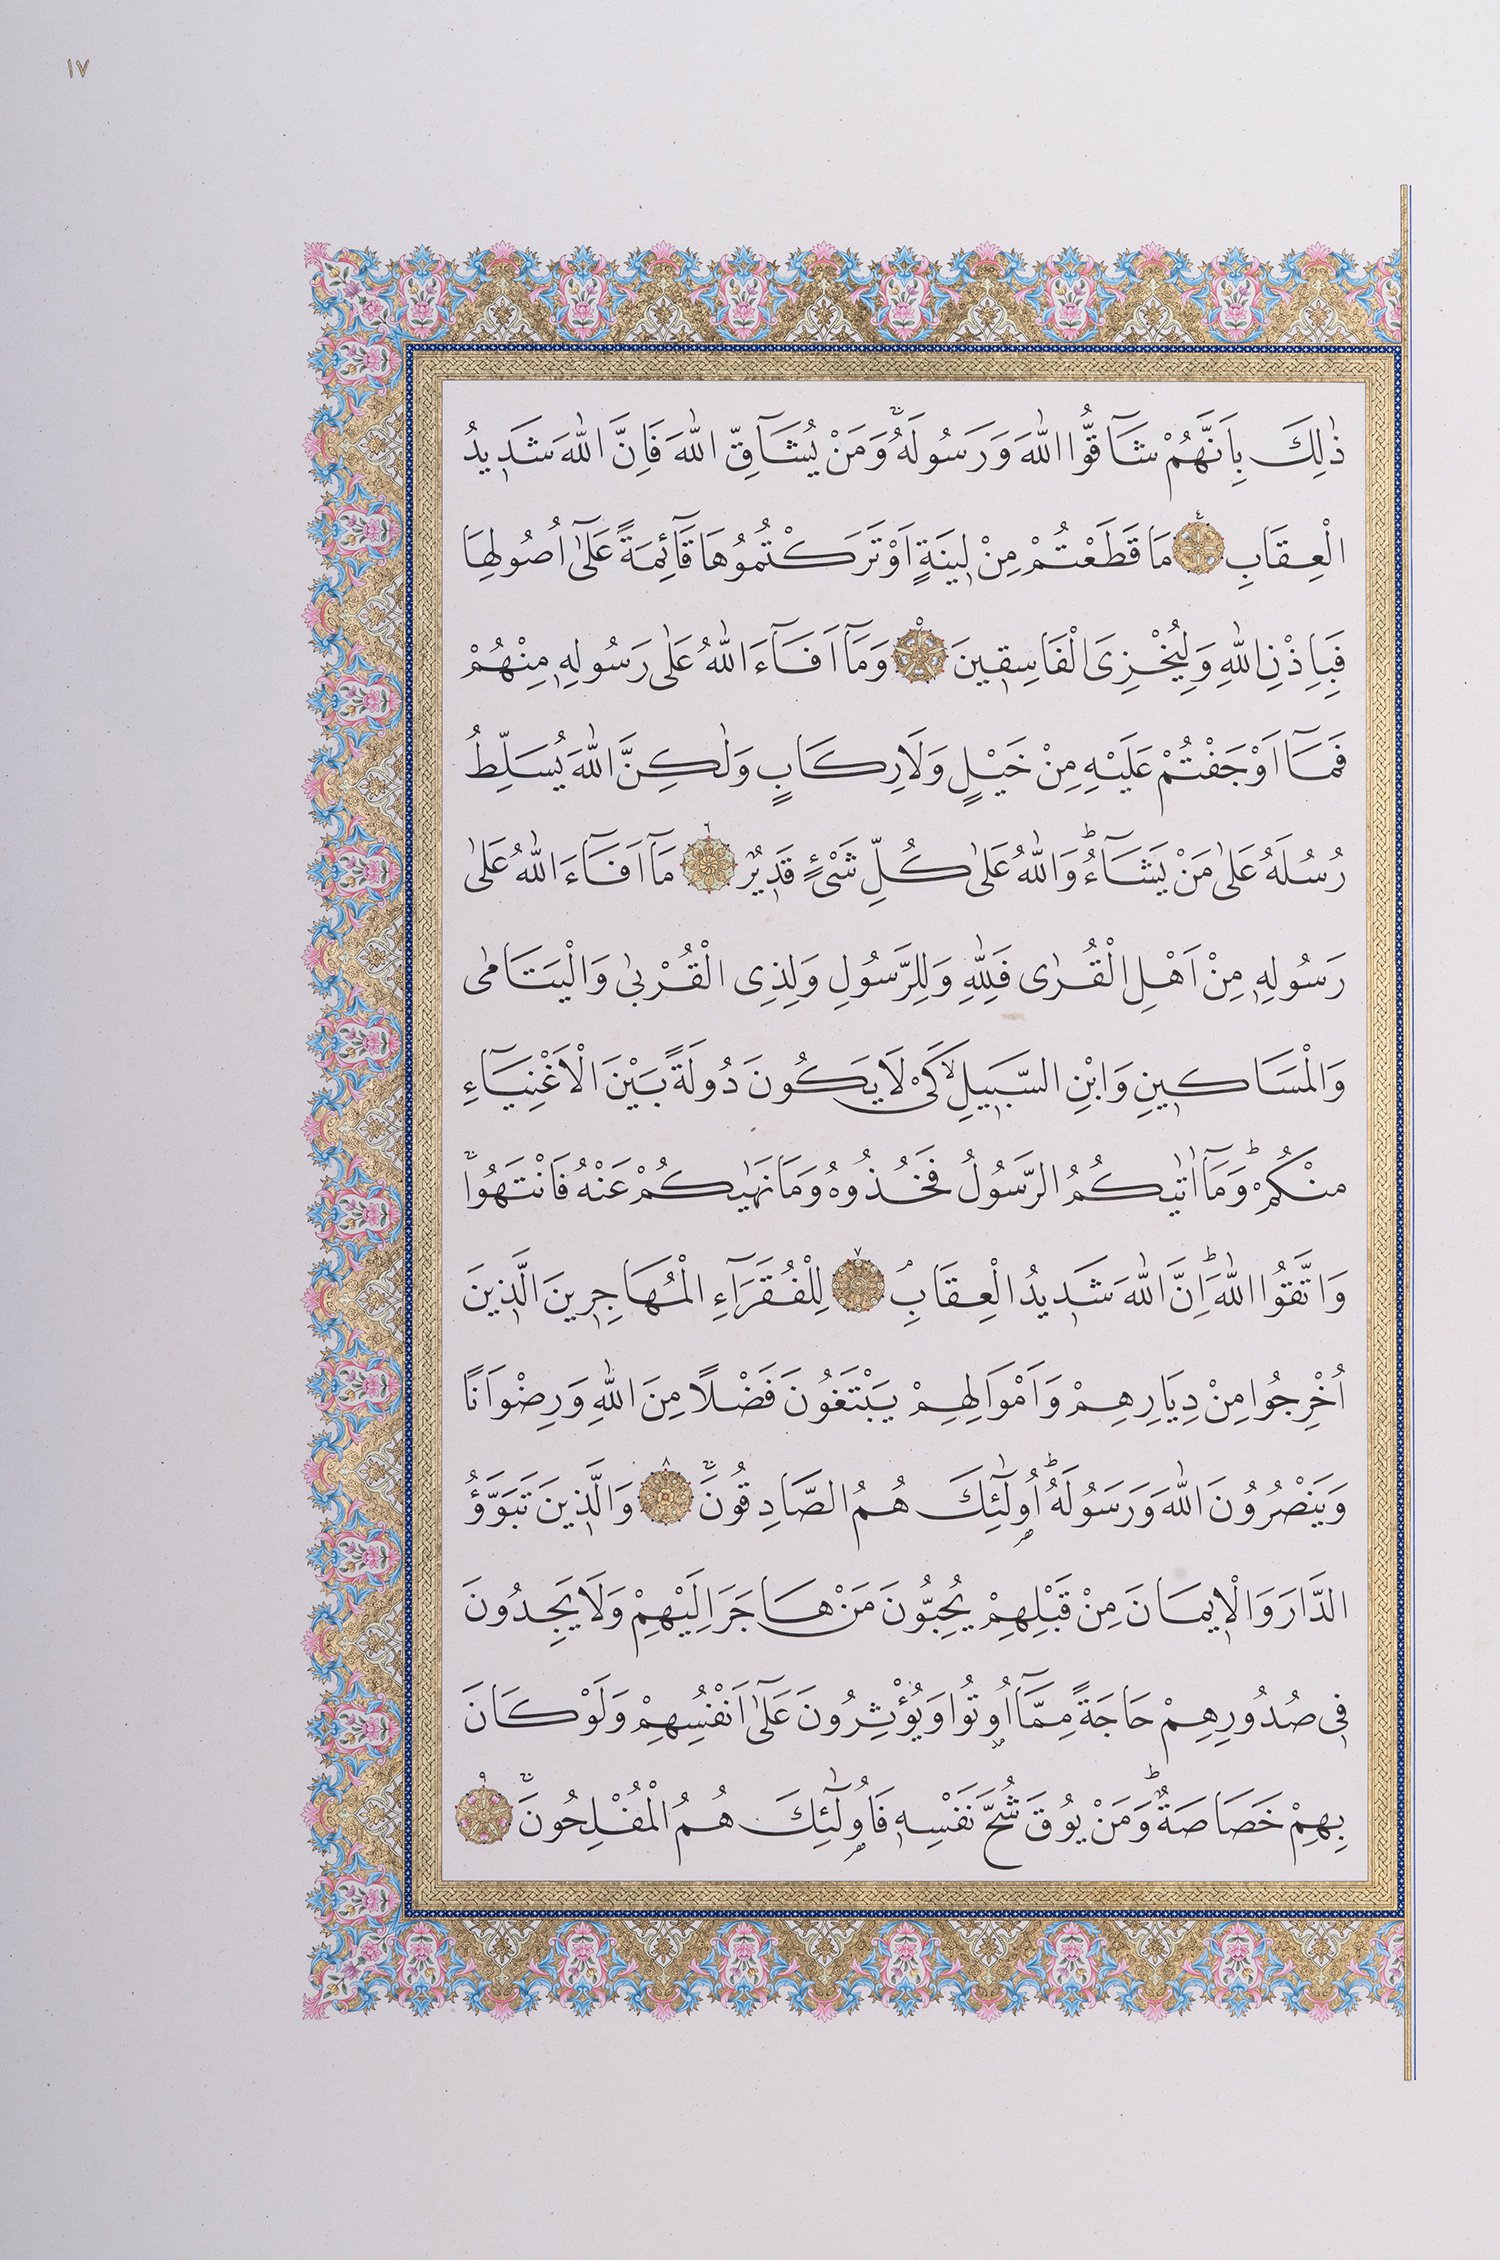 ١٧
ذٰلِكَ بِاَنَّهُمْ شَآقُّوا اللّٰهَ وَرَسُولَهُۚ وَمَنْ يُشَآقِّ اللّٰهَ فَاِنَّ اللّٰهَ شَدٖيدُ
الْعِقَابِ ٤ مَا قَطَعْتُمْ مِنْ لٖينَةٍ اَوْ تَرَكْتُمُوهَا قَآئِمَةً عَلٰٓى اُصُولِهَا
فَبِاِذْنِ اللّٰهِ وَلِيُخْزِىَ الْفَاسِقٖينَ ٥ وَمَآ اَفَآءَ اللّٰهُ عَلٰى رَسُولِهٖ مِنْهُمْ
فَمَآ اَوْجَفْتُمْ عَلَيْهِ مِنْ خَيْلٍ وَلَا رِكَابٍ وَلٰكِنَّ اللّٰهَ يُسَلِّطُ
رُسُلَهُ عَلٰى مَنْ يَشَآءُؕ وَاللّٰهُ عَلٰى كُلِّ شَىْءٍ قَدٖيرٌ ٦ مَآ اَفَآءَ اللّٰهُ عَلٰى
رَسُولِهٖ مِنْ اَهْلِ الْقُرٰى فَلِلّٰهِ وَلِلرَّسُولِ وَلِذِى الْقُرْبٰى وَالْيَتَامٰى
وَالْمَسَاكٖينِ وَابْنِ السَّبٖيلِۙ كَىْ لَا يَكُونَ دُولَةً بَيْنَ الْاَغْنِيَآءِ
مِنْكُمْؕ وَمَآ اٰتٰيكُمُ الرَّسُولُ فَخُذُوهُ وَمَا نَهٰيكُمْ عَنْهُ فَانْتَهُواۚ
وَاتَّقُوا اللّٰهَؕ اِنَّ اللّٰهَ شَدٖيدُ الْعِقَابِۢ ٧ لِلْفُقَرَآءِ الْمُهَاجِرٖينَ الَّذٖينَ
اُخْرِجُوا مِنْ دِيَارِهِمْ وَاَمْوَالِهِمْ يَبْتَغُونَ فَضْلًا مِنَ اللّٰهِ وَرِضْوَانًا
وَيَنْصُرُونَ اللّٰهَ وَرَسُولَهُؕ اُولٰٓئِكَ هُمُ الصَّادِقُونَۚ ٨ وَالَّذٖينَ تَبَوَّؤُ
الدَّارَ وَالْاٖيمَانَ مِنْ قَبْلِهِمْ يُحِبُّونَ مَنْ هَاجَرَ اِلَيْهِمْ وَلَا يَجِدُونَ
فٖى صُدُورِهِمْ حَاجَةً مِمَّآ اُوتُوا وَيُؤْثِرُونَ عَلٰٓى اَنْفُسِهِمْ وَلَوْ كَانَ
بِهِمْ خَصَاصَةٌؕ وَمَنْ يُوقَ شُحَّ نَفْسِهٖ فَاُولٰٓئِكَ هُمُ الْمُفْلِحُونَۚ ٩